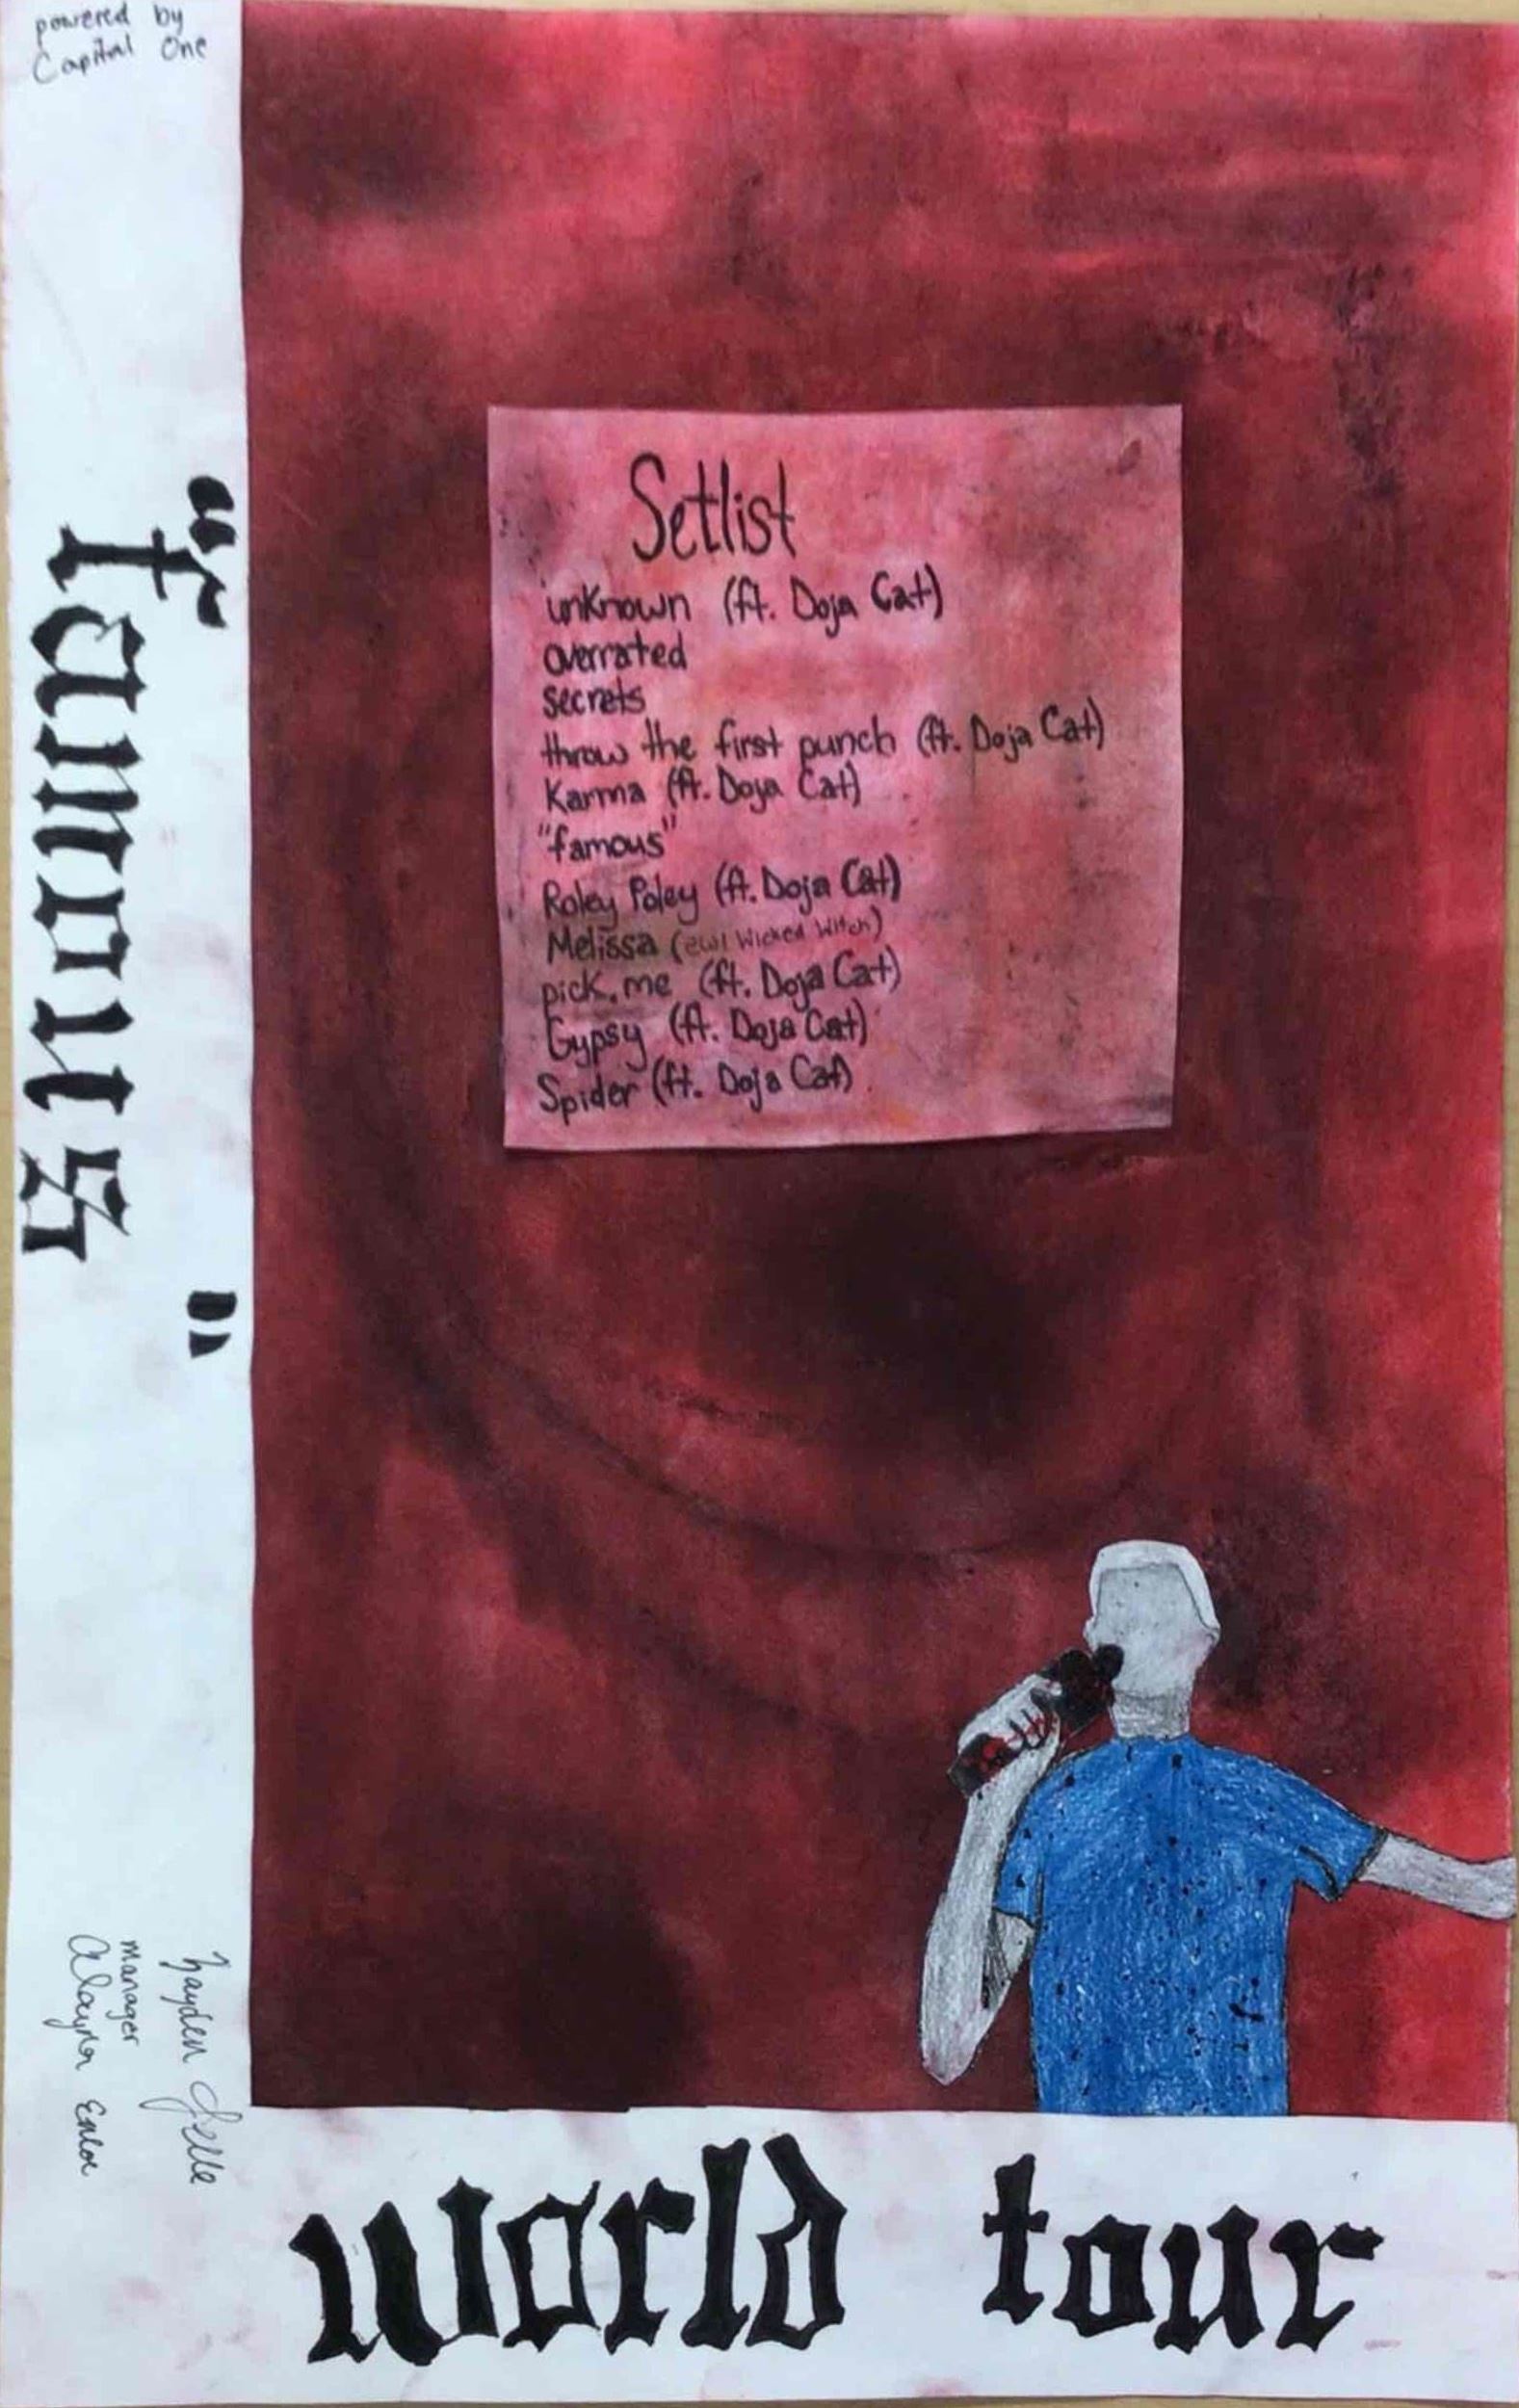 powered by
Capital One
"famous"
Setlist
unknown (ft. Doja Cat)
overrated
secrets
throw the first punch (ft. Doja Cat)
Karma (ft. Doja Cat)
"famous"
Roley Poley (ft. Doja Cat)
Melissa (ewl Wicked Witch)
pick.me (ft. Doja Cat)
Gypsy (ft. Doja Cat)
Spider (ft. Doja Cat)
manager
world tour